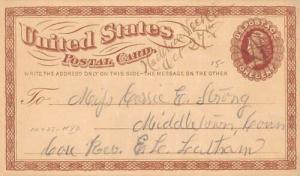 United States
Postal Card.
WRITE THE ADDRESS ONLY ON THIS SIDE - THE MESSAGE ON THE OTHER
U.S. POSTAGE
ONE CENT
15-
To- Miss Jessie E. Strong
Middletown, Conn
Care Rev. E. L. Latham